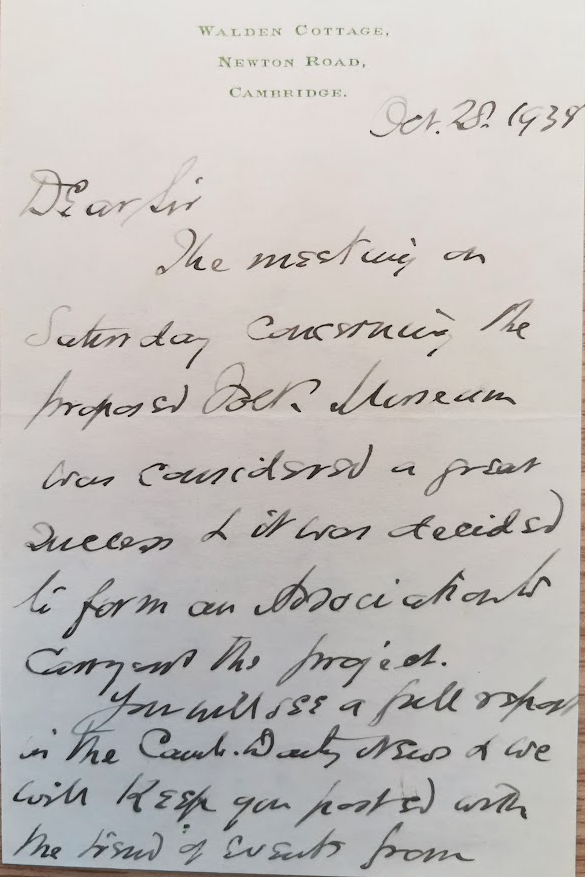 WALDEN COTTAGE,
NEWTON ROAD,
CAMBRIDGE.
Oct. 28. 1934
Dear Sir
The meeting on
Saturday concerning the
proposed Folk Museum
was considered a great
success & it was decided
to form an Association to
Carry out the project.
You will see a full report
in the Camb. Daily News & we
will keep you posted with
the trend of events from